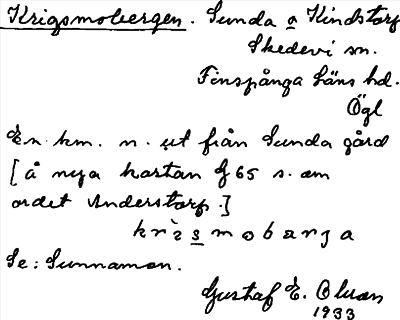 Krigsmobergen. Sunda o Kindstorp
Skedevi sn.
Finspånga läns hd.
Ögl
En km. n. ut från Sunda gård
[å nya kartan f 65 s. om
ordet Anderstorp.]
krìsmobærja
Se: Sunnamon.
Gustaf E. Olsson
1933